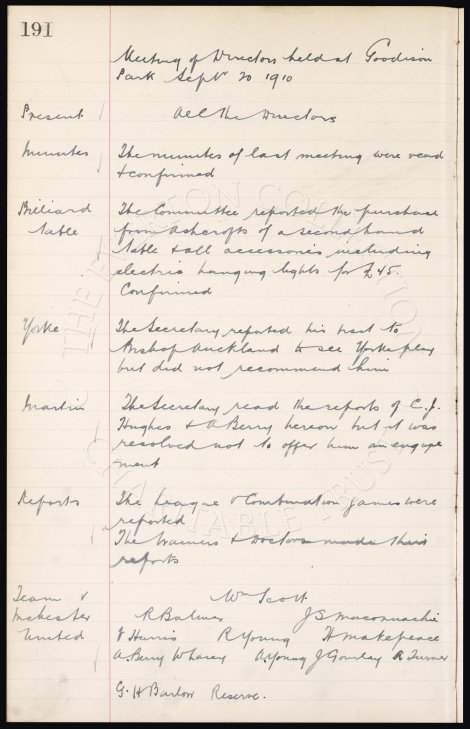 191
Meeting of Directors held at Goodison
Park Septr 20 1910
Present All the Directors
Minutes The minutes of last meeting were read
& confirmed
Billiard The Committee reported the purchase
Table from Ashcrofts of a second hand
table & all accessories including
electric hanging lights for £45.
Confirmed
Yorke The Secretary reported his visit to
Bishop Auckland to see Yorke play
but did not recommend him
Martin The Secretary read the reports of C.J.
Hughes & A Berry hereon but it was
resolved not to offer him an engage
ment
Reports The League & Combination games were
reported
The trainers & Doctors made their
reports
Team v Wm Scott
Mchester R Balmer J S Maconnachie
United V Harris R Young H Makepeace
A. Berry W Lacey A. Young J Gourlay A Turner
G. H Barlow Reserve.
THE EVERTON COLLECTION
CHARITABLE TRUST